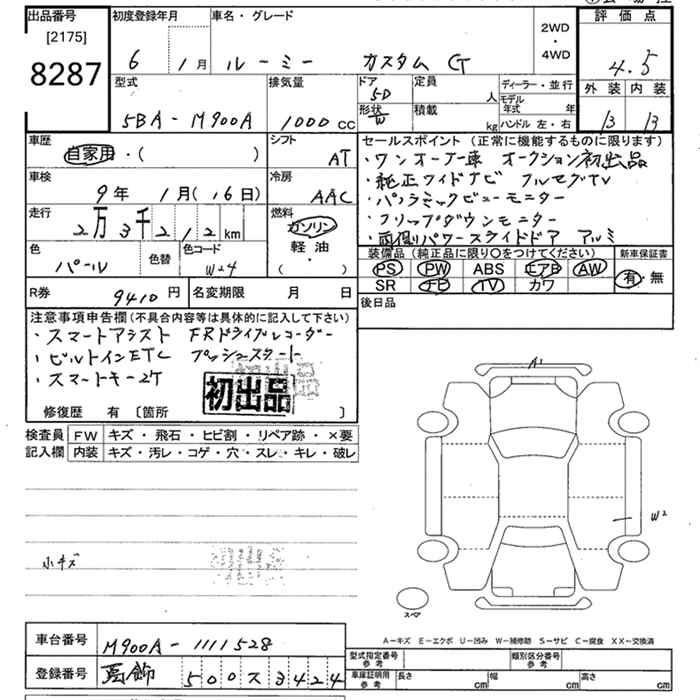 出品番号
[2175]
8287
初度登録年月
6 1月
車名・グレード
ルーミー カスタム G
2WD
・
4WD
評価点
4.5
外装 内装
B B
型式
5BA-M900A
排気量
1000 CC
ドア
5D
形状
W
定員
人
積載
kg
ディーラー・並行
モデル年式 年
ハンドル 左・右
車歴
自家用・( )
シフト
AT
車検
9年 1月(16日)
冷房
AAC
走行
2万3千212km
燃料
ガソリン
軽油
・
( )
色
パール
色替
色コード
W24
R券
9410円
名変期限 月 日
セールスポイント(正常に機能するものに限ります)
・ワンオーナー車 オークション初出品
・純正ワイドナビ フルセグTV
・パノラミックビューモニター
・フリップダウンモニター
・両側パワースライドドア アルミ
装備品(純正品に限り○をつけてください)
新車保証書
PS PW ABS エアB AW
SR TV カワ
有・無
後日品
注意事項申告欄(不具合内容等は具体的に記入して下さい)
・スマートアシスト FRドライブレコーダー
・ビルトインETC プッシュスタート
・スマートキー2ケ
初出品
修復歴 有〔箇所 〕
検査員記入欄
FW キズ・飛石・ヒビ割・リペア跡・×要
内装 キズ・汚レ・コゲ・穴・スレ・キレ・破レ
小キズ
A1
W2
スペア
A-キズ E-エクボ U-凹み W-補修跡 S-サビ C-腐食 XX-交換済
車台番号
M900A-1111528
登録番号
葛飾 500ス3424
型式指定番号
参考
類別区分番号
参考
車庫証明用
参考
長さ cm 幅 cm 高さ cm